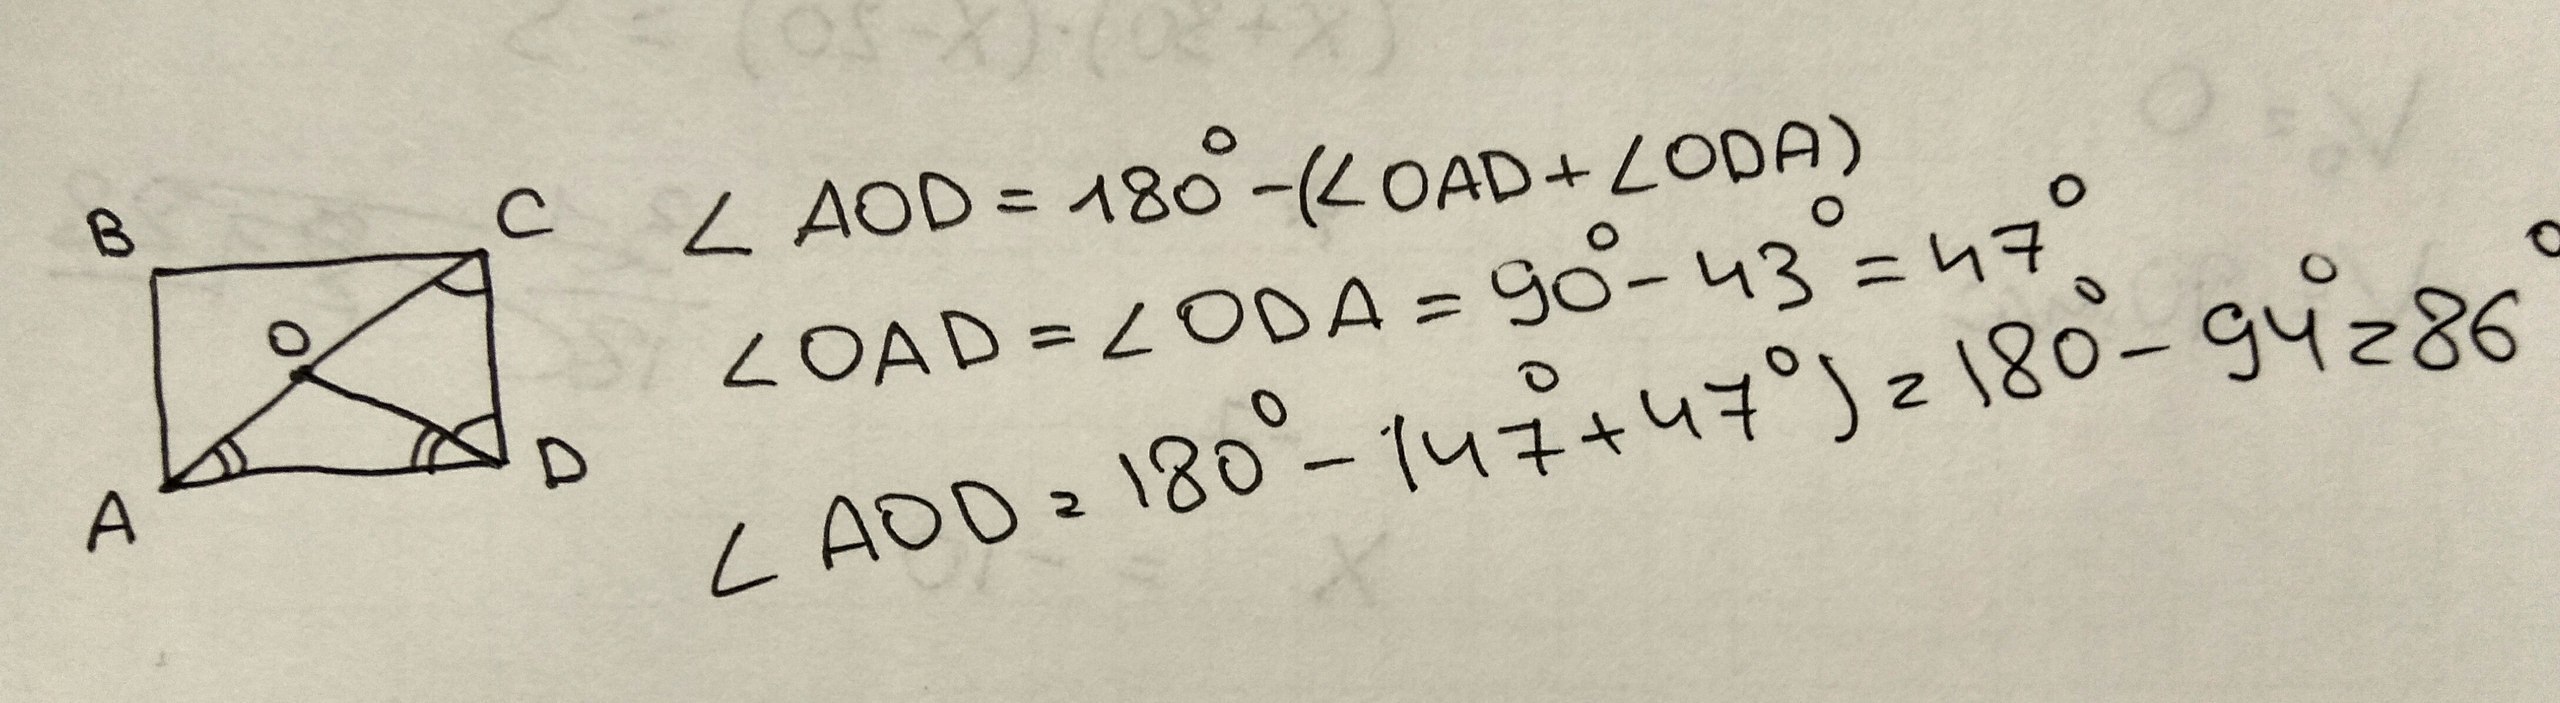 B
C
O
A
D
∠ AOD = 180° - (∠OAD + ∠ODA)
∠OAD = ∠ODA = 90° - 43° = 47°
∠ AOD = 180° - (47° + 47°) = 180° - 94° = 86°